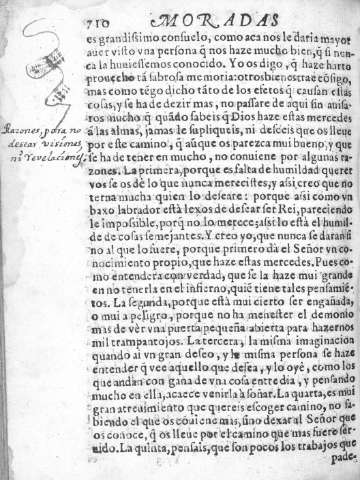 710 MORADAS
es grandissimo consuelo, como aca nos le daria mayor
auer visto vna persona q̃ nos haze mucho bien, q̃ si nun-
ca la huuiessemos conocido. Yo os digo, q̃ haze harto
prouecho tã sabrosa memoria: otros bienes trae cõsigo,
mas como tẽgo dicho tãto de los efetos q̃ causan estas
cosas, y se ha de dezir mas, no passare de aqui sin auisa-
ros mucho q̃ quãdo sabeis q̃ Dios haze estas mercedes
à las almas, jamas le supliqueis, ni desseis que os lleue
por este camino, q̃ aũque os parezca mui bueno, y que
se ha de tener en mucho, no conuiene por algunas ra-
zones. La primera, porque es falta de humildad querer
vos se os dè lo que nunca merecistes, y assi creo que no
terna mucha quien lo desseare: porque assi como vn
baxo labrador està lexos de dessear ser Rei, pareciendo
le impossible, porq̃ no lo merece: assi lo està el humil-
de de cosas semejantes. Y creo yo, que nunca se daran si
no al que lo fuere, porque primero da el Señor vn co-
nocimiento propio, que haze estas mercedes. Pues co-
mo entendera con verdad, que se la haze mui grande
en no tenerla en el infierno, quiẽ tiene tales pensamiẽ-
tos. La segunda, porque està mui cierto ser engañada,
o mui a peligro, porque no ha menester el demonio
mas de ver vna puerta pequeña abierta para hazernos
mil trampantojos. La tercera, la misma imaginacion
quando ai vn gran desseo, y la misma persona se haze
entender q̃ vee aquello que dessea, y lo oye, como los
que andan con gana de vna cosa entre dia, y pensando
mucho en ella, acaece venirla a soñar. La quarta, es mui
gran atreuimiento que quereis escoger camino, no sa-
biendo el que os cõuiene mas, sino dexar al Señor que
os conoce, q̃ os lleue por el camino que mas fuere ser-
uido. La quinta, pensais, que son pocos los trabajos que
pade-
Razones, para no
desear visiones,
ni revelaciones